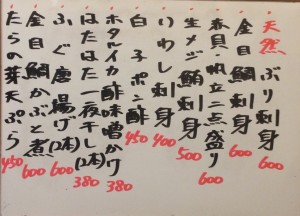 天然ぶり刺身 600
金目鯛刺身 600
赤貝帆立二点盛り 600
生メジ刺身 500
いわし刺身 400
白子ポン酢 450
ホタルイカ酢味噌かけ 380
はたはた一夜干し(2本) 380
ふぐ唐揚げ(2本) 600
金目鯛かぶと煮 600
たらの芽天ぷら 450